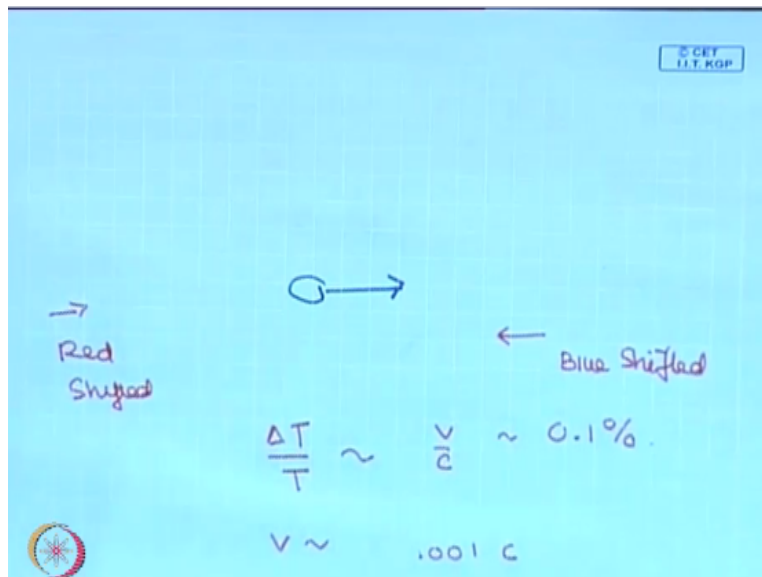 © CET
I.I.T. KGP
→
Red
Shifted
←
Blue Shifted
ΔT/T ~ v/c ~ 0.1%.
v ~ .001 c